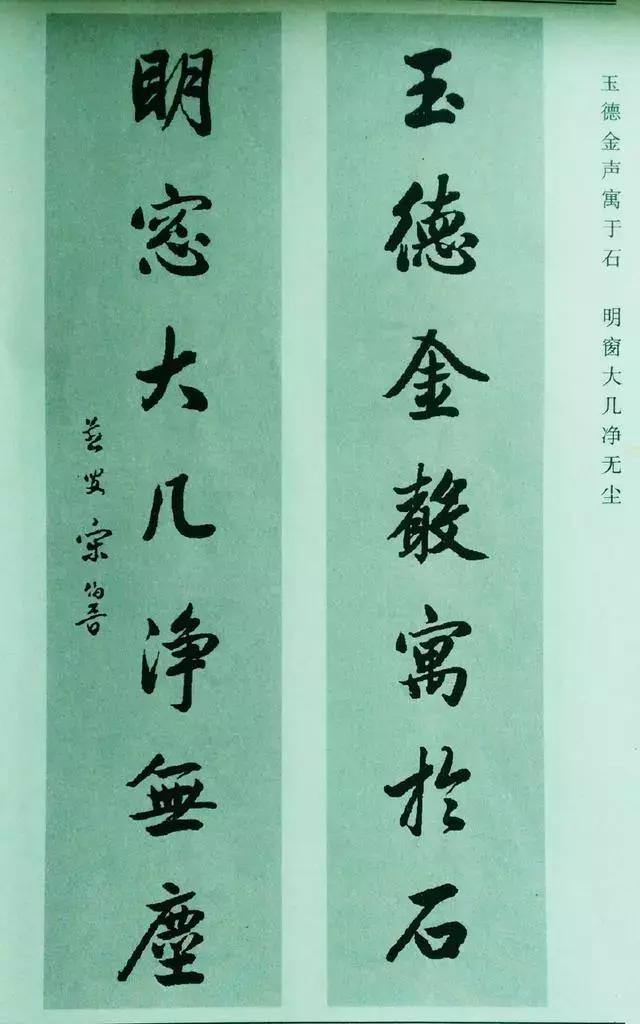 玉德金声寓于石 明窗大几净无尘
玉德金聲寓於石
明窓大几淨無塵
宋伯魯